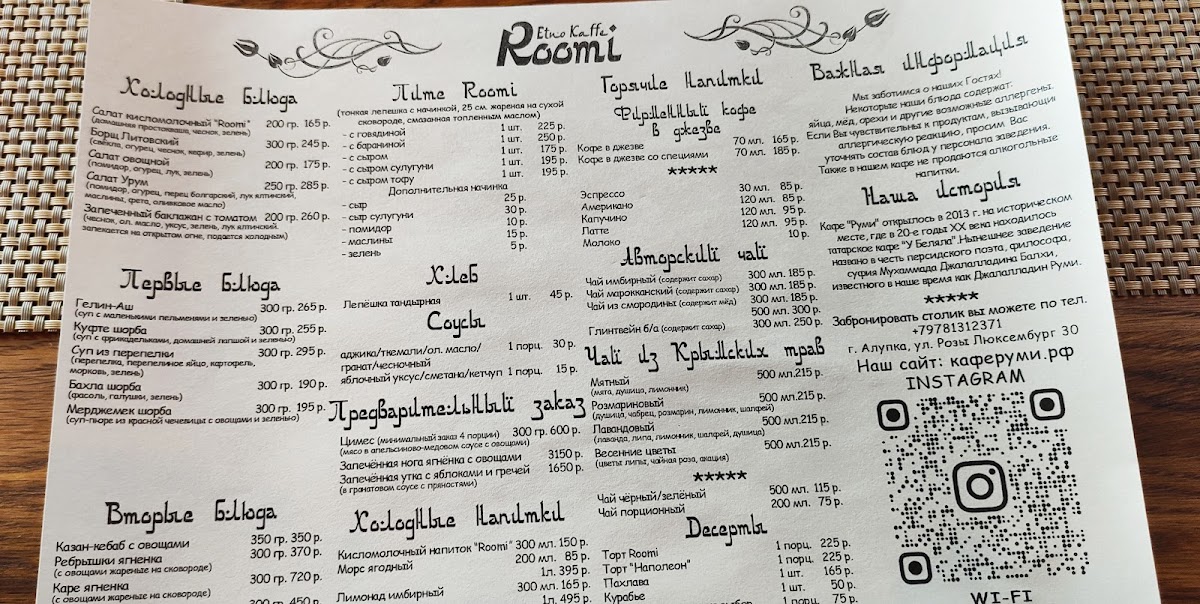 Etno Kaffe
Roomi
Холодные блюда
Салат кисломолочный "Roomi" 200 гр. 165 р.
(домашняя простокваша, чеснок, зелень)
Борщ Литовский 300 гр. 245 р.
(свёкла, огурец, чеснок, кефир, зелень)
Салат овощной 200 гр. 175 р.
(помидор, огурец, лук, зелень)
Салат Урум 250 гр. 285 р.
(помидор, огурец, перец болгарский, лук ялтинский,
маслины, фета, оливковое масло)
Запеченный баклажан с томатом 200 гр. 260 р.
(чеснок, ол. масло, уксус, зелень, лук ялтинский.
запекается на открытом огне, подается холодным)
Первые блюда
Гелин-Аш 300 гр. 265 р.
(суп с маленькими пельменями и зеленью)
Куфте шорба 300 гр. 255 р.
(суп с фрикадельками, домашней лапшой и зеленью)
Суп из перепелки 300 гр. 295 р.
(перепелка, перепелиное яйцо, картофель,
морковь, зелень)
Бахла шорба 300 гр. 190 р.
(фасоль, галушки, зелень)
Мерджемек шорба 300 гр. 195 р.
(суп-пюре из красной чечевицы с овощами и зеленью)
Вторые блюда
Казан-кебаб с овощами 350 гр. 350 р.
Ребрышки ягненка 300 гр. 370 р.
(с овощами жареные на сковороде)
Каре ягненка 300 гр. 720 р.
(с овощами жареные на сковороде)
300 гр. 450 р.
Питe Roomi
(тонкая лепешка с начинкой, 25 см. жареная на сухой
сковороде, смазанная топленным маслом)
- с говядиной 1 шт. 225 р.
- с бараниной 1 шт. 250 р.
- с сыром 1 шт. 175 р.
- с сыром сулугуни 1 шт. 195 р.
- с сыром тофу 1 шт. 195 р.
Дополнительная начинка
- сыр 25 р.
- сыр сулугуни 30 р.
- помидор 10 р.
- маслины 15 р.
- зелень 5 р.
Хлеб
Лепёшка тандырная 1 шт. 45 р.
Соусы
аджика/ткемали/ол. масло/ 1 порц. 30 р.
гранат/чесночный
яблочный уксус/сметана/кетчуп 1 порц. 15 р.
Предварительный заказ
Цимес (минимальный заказ 4 порции) 300 гр. 600 р.
(мясо в апельсиново-медовом соусе с овощами)
Запечённая нога ягнёнка с овощами 3150 р.
Запечённая утка с яблоками и гречей 1650 р.
(в гранатовом соусе с пряностями)
Холодные напитки
Кисломолочный напиток "Roomi" 300 мл. 150 р.
Морс ягодный 200 мл. 85 р.
1л. 395 р.
Лимонад имбирный 300 мл. 165 р.
1л. 495 р.
Горячие напитки
Фирменный кофе
в джезве
Кофе в джезве 70 мл. 165 р.
Кофе в джезве со специями 70 мл. 185 р.
*****
Эспрессо 30 мл. 85 р.
Американо 120 мл. 85 р.
Капучино 120 мл. 95 р.
Латте 120 мл. 95 р.
Молоко 10 р.
Авторский чай
Чай имбирный (содержит сахар) 300 мл. 185 р.
Чай марокканский (содержит сахар) 300 мл. 185 р.
Чай из смородины (содержит мёд) 300 мл. 185 р.
500 мл. 300 р.
Глинтвейн б/а (содержит сахар) 300 мл. 250 р.
Чай из Крымских трав
Мятный 500 мл.215 р.
(мята, душица, лимонник)
Розмариновый 500 мл.215 р.
(душица, чабрец, розмарин, лимонник, шалфей)
Лавандовый 500 мл.215 р.
(лаванда, липа, лимонник, шалфей, душица)
Весенние цветы 500 мл.215 р.
(цветы липы, чайная роза, акация)
*****
Чай чёрный/зелёный 500 мл. 115 р.
Чай порционный 200 мл. 75 р.
Десерты
Торт Roomi 1 порц. 225 р.
Торт "Наполеон" 1 порц. 225 р.
Пахлава 1 шт. 165 р.
Курабье 1 шт. 50 р.
1 порц. 75 р.
Важная информация
Мы заботимся о наших Гостях!
Некоторые наши блюда содержат:
яйца, мёд, орехи и другие возможные аллергены.
Если Вы чувствительны к продуктам, вызывающим
аллергическую реакцию, просим Вас
уточнять состав блюд у персонала заведения.
Также в нашем кафе не продаются алкогольные
напитки.
Наша история
Кафе "Руми" открылось в 2013 г. на историческом
месте, где в 20-е годы XX века находилось
татарское кафе "У Беляла".Нынешнее заведение
названо в честь персидского поэта, философа,
суфия Мухаммада Джалалладина Балхи,
известного в наше время как Джалалладин Руми.
*****
Забронировать столик вы можете по тел.
+79781312371
г. Алупка, ул. Розы Люксембург 30
Наш сайт: каферуми.рф
INSTAGRAM
WI-FI